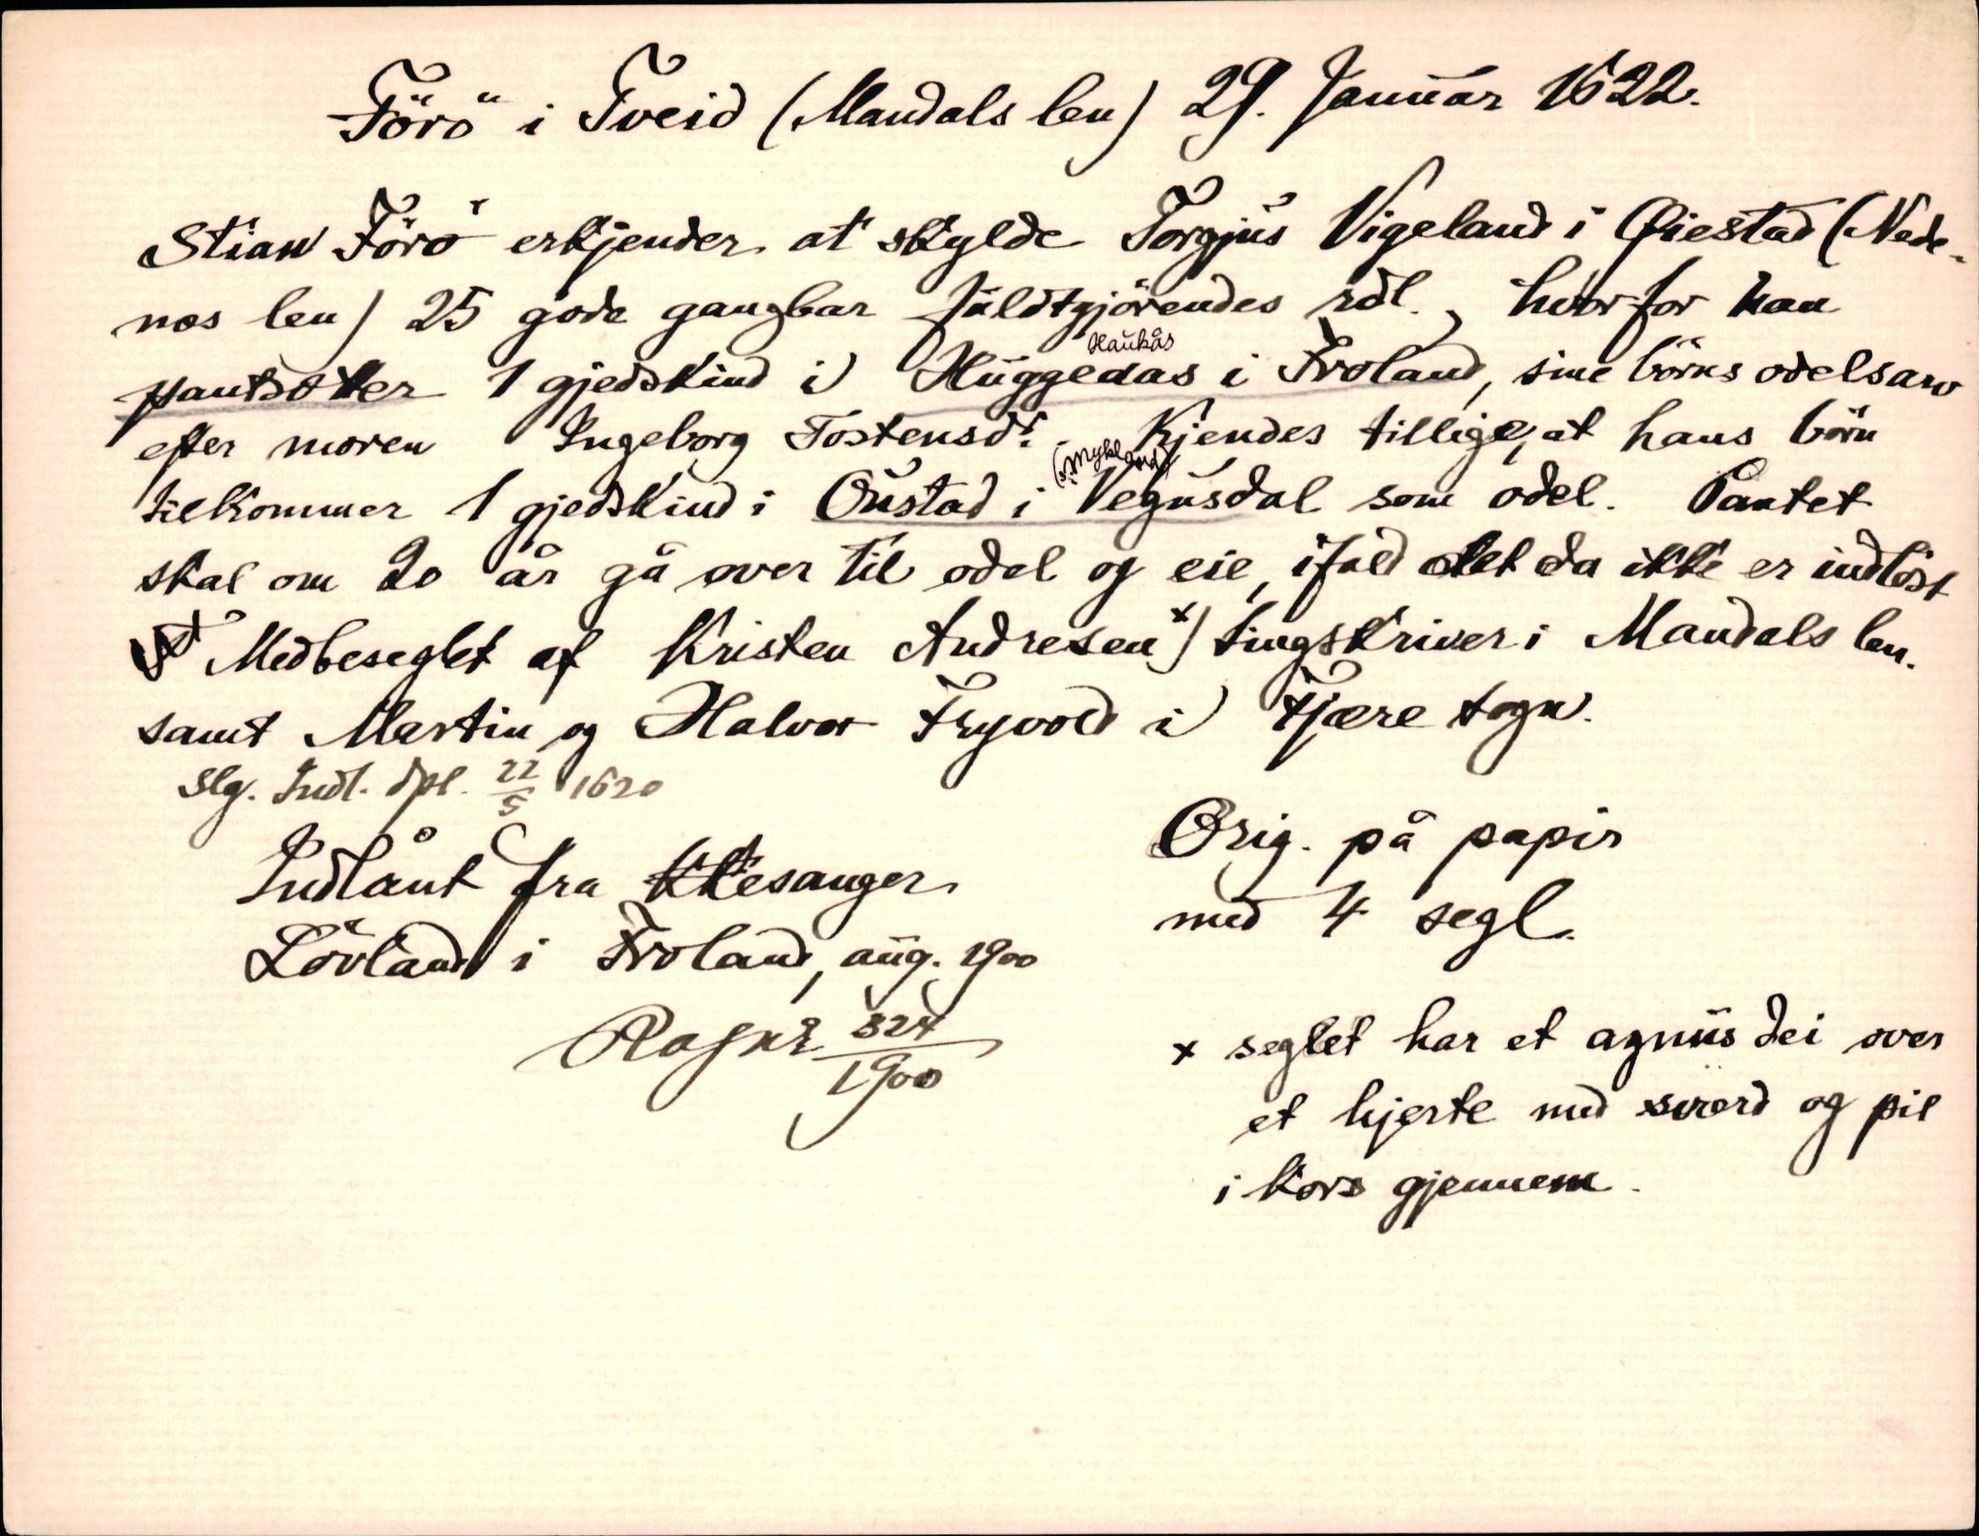 Förö i Tveid (Mandals len) 29. Januar 1622.
Stian Förö erkjender at skylde Torgjus Vigeland i Øiestad (Nede-
nes len) 25 gode gangbar fuldtgjörendes rdl., hvorfor han
Haukås
pantsætter 1 gjedskind i Huggeaas i Froland, sine börns odelsarv
efter moren Ingeborg Tostensdt. Kjendes tillige, at hans börn
(i Mykland)
tilkommer 1 gjedskind i Ustad i Vegusdal som odel. Pantet
skal om 20 år gå over til odel og eie, ifald det da ikke er indlöst
Medbeseglet af Kristen Andresen x) tingskriver i Mandals len.
samt Martin og Halvor Fryvold i Fjære sogn.
Slg. Indl. dpl. 22/5 1620
Indlånt fra Kesanger
Lövland i Froland, aug. 1900
Orig. på papir
med 4 segl.
324/1900
x seglet har et agnus dei over
et hjerte med sværd og pil
i kors gjennem.